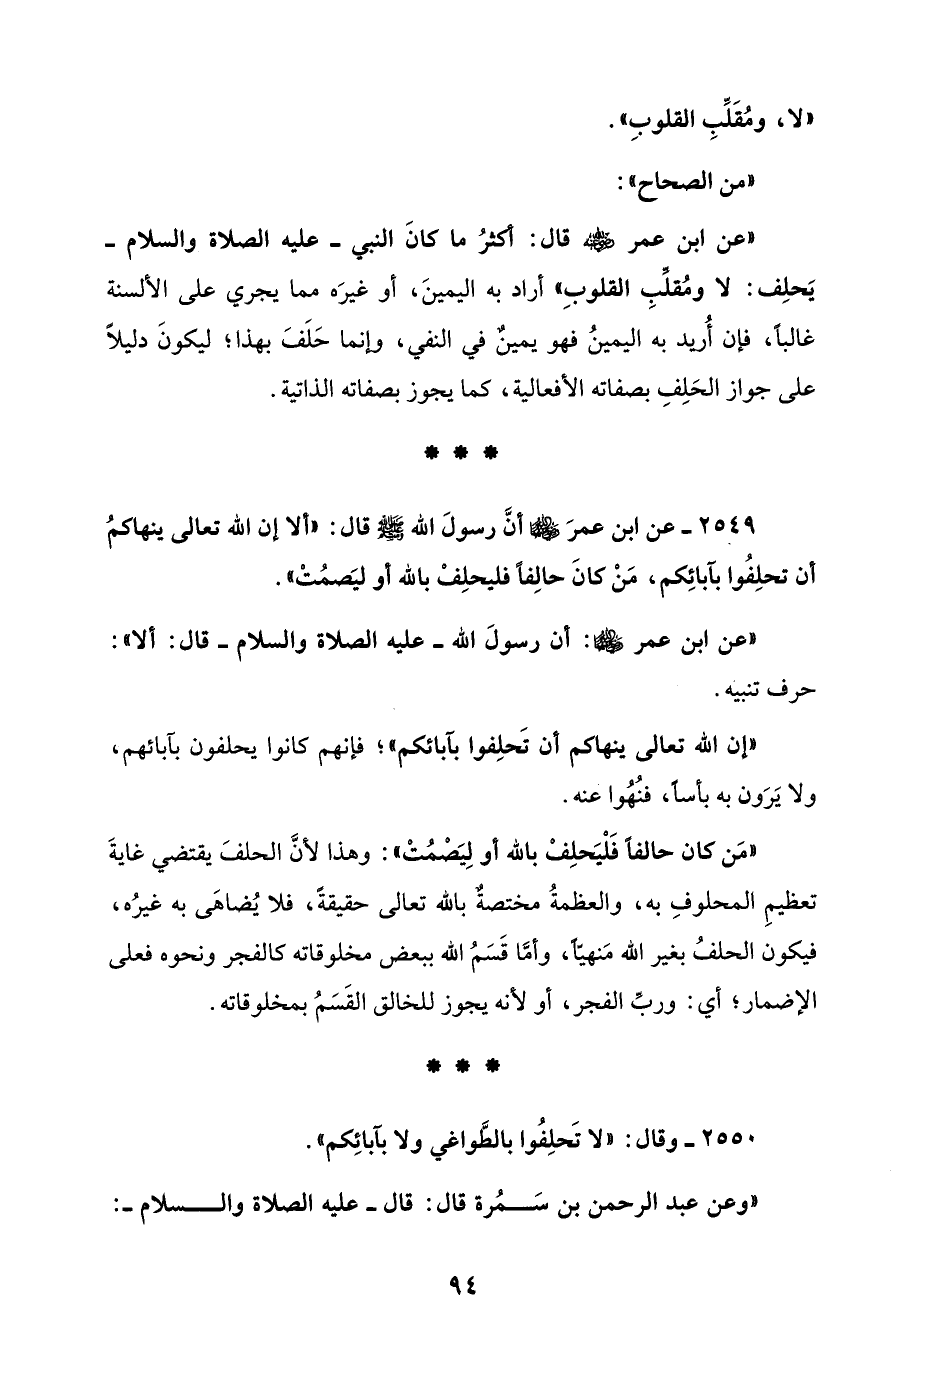 «لا، ومُقَلِّبِ القلوبِ».
«من الصحاح»:
«عن ابن عمر ﵁ قال: أكثرُ ما كانَ النبي ـ عليه الصلاة والسلام ـ
يَحلِف: لا ومُقلِّبِ القلوبِ» أراد به اليمينَ، أو غيرَه مما يجري على الألسنة
غالباً، فإن أُريد به اليمينُ فهو يمينٌ في النفي، وإنما حَلَفَ بهذا؛ ليكونَ دليلاً
على جواز الحَلِفِ بصفاته الأفعالية، كما يجوز بصفاته الذاتية.
* * *
٢٥٤٩ ـ عن ابن عمرَ ﵄ أنَّ رسولَ الله ﷺ قال: «ألا إن الله تعالى ينهاكمُ
أن تحلِفُوا بآبائِكم، مَنْ كانَ حالِفاً فليحلِفْ بالله أو ليَصمُتْ».
«عن ابن عمر ﵄: أن رسولَ الله ـ عليه الصلاة والسلام ـ قال: ألا»:
حرف تنبيه.
«إن الله تعالى ينهاكم أن تَحلِفوا بآبائكم»؛ فإنهم كانوا يحلفون بآبائهم،
ولا يَرَون به بأساً، فنُهُوا عنه.
«مَن كان حالفاً فَلْيَحلِفْ بالله أو لِيَصْمُتْ»: وهذا لأنَّ الحلفَ يقتضي غايةَ
تعظيمِ المحلوفِ به، والعظمةُ مختصةٌ بالله تعالى حقيقةً، فلا يُضاهَى به غيرُه،
فيكون الحلفُ بغير الله مَنهيّاً، وأمَّا قَسَمُ الله ببعض مخلوقاته كالفجر ونحوه فعلى
الإضمار؛ أي: وربِّ الفجر، أو لأنه يجوز للخالق القَسَمُ بمخلوقاته.
* * *
٢٥٥٠ ـ وقال: «لا تَحلِفُوا بالطَّواغي ولا بآبائِكم».
«وعن عبد الرحمن بن سَـمُرة قال: قال ـ عليه الصلاة والـسلام ـ:
٩٤